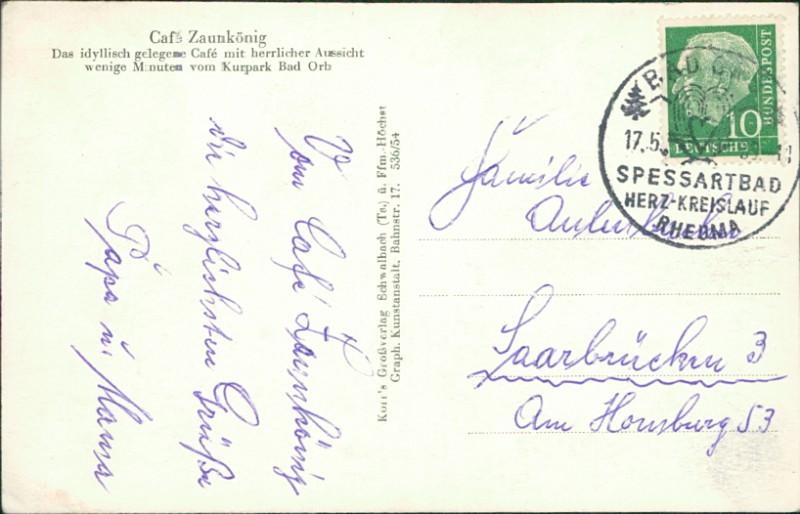 Café Zaunkönig
Das idyllisch gelegene Café mit herrlicher Aussicht
wenige Minuten vom Kurpark Bad Orb
Vom Café Zaunkönig
die herzlichsten Grüße
Papa u. Mama
Korr's Großverlag Schwalbach (Ts.) ü. Ffm.-Höchst
Graph. Kunstanstalt, Bahnstr. 17. 536/54
BUNDESPOST
10
DEUTSCHE
BAD
17.5.
SPESSARTBAD
HERZ-KREISLAUF
RHEUMA
Familie
Saarbrücken 3
Am Homburg 53